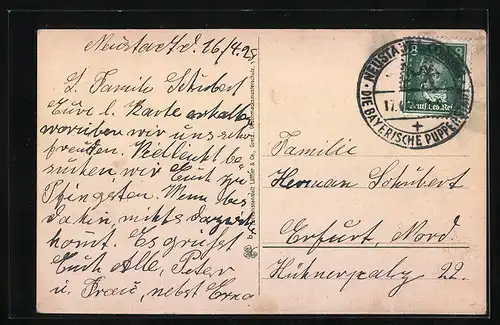 Neustadt d. 16/4.28
L. Familie Schubert
Eure l. Karte erhalten
worüber wir uns sehr
freuten. Vielleicht be
suchen wir Euch zu
Pfingsten. Wenn bis
dahin nichts dazwisch
komt. Es grüsst
Euch Alle, Peter
u. Frau, nebst Erna
NEUSTADT
DIE BAYERISCHE PUPPENSTADT
8 8
Familie
Herman Schubert
Erfurt, Nord.
22.